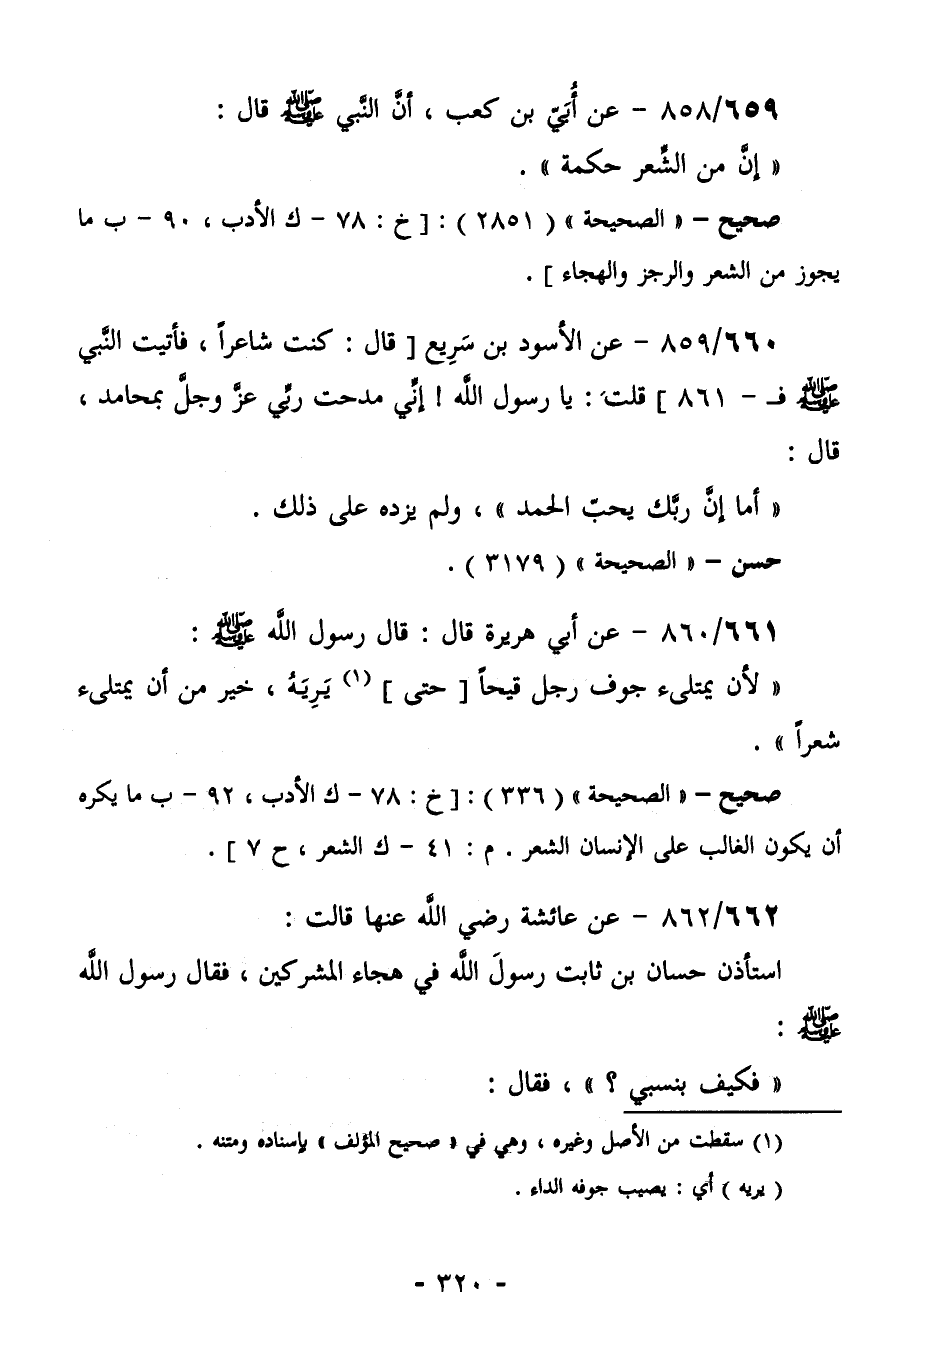 ٨٥٨/٦٥٩ - عن أُبَيّ بن كعب ، أنَّ النَّبي ﷺ قال :
« إنَّ من الشِّعر حكمة » .
صحيح – « الصحيحة » ( ٢٨٥١ ) : [ خ : ٧٨ – ك الأدب ، ٩٠ – ب ما
يجوز من الشعر والرجز والهجاء ] .
٨٥٩/٦٦٠ - عن الأسود بن سَرِيع [ قال : كنت شاعراً ، فأتيت النَّبي
ﷺ فـ - ٨٦١ ] قلت : يا رسول اللَّه ! إنِّي مدحت ربِّي عزَّ وجلَّ بمحامد ،
قال :
« أما إنَّ ربَّك يحبّ الحمد » ، ولم يزده على ذلك .
حسن – « الصحيحة » ( ٣١٧٩ ) .
٨٦٠/٦٦١ - عن أبي هريرة قال : قال رسول اللَّه ﷺ :
« لأن يمتلىء جوف رجل قيحاً [ حتى ] (١) يَرِيَهُ ، خير من أن يمتلىء
شعراً » .
صحيح – « الصحيحة » ( ٣٣٦ ) : [ خ : ٧٨ – ك الأدب ، ٩٢ – ب ما يكره
أن يكون الغالب على الإنسان الشعر . م : ٤١ – ك الشعر ، ح ٧ ] .
٨٦٢/٦٦٢ - عن عائشة رضي اللَّه عنها قالت :
استأذن حسان بن ثابت رسولَ اللَّه في هجاء المشركين ، فقال رسول اللَّه
ﷺ :
« فكيف بنسبي ؟ » ، فقال :
(١) سقطت من الأصل وغيره ، وهي في « صحيح المؤلف » بإسناده ومتنه .
( يريه ) أي : يصيب جوفه الداء .
- ٣٢٠ -